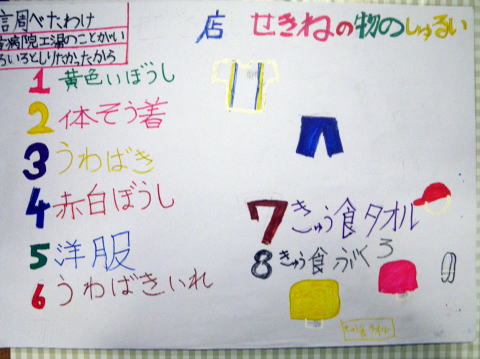 調べたわけ
病院工場のことがい
ろいろとしりたかったから
店 せきねの物のしゅるい
1 黄色いぼうし
2 体そう着
3 うわばき
4 赤白ぼうし
5 洋服
6 うわばきいれ
7 きゅう食タオル
8 きゅう食ぶくろ